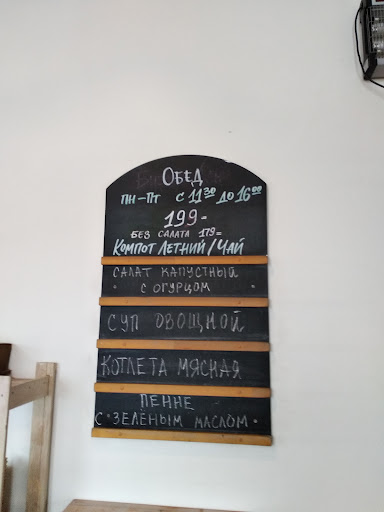 ОБЕД
ПН-ПТ С 11³⁰ ДО 16⁰⁰
199-
БЕЗ САЛАТА 179=
КОМПОТ ЛЕТНИЙ/ЧАЙ
САЛАТ КАПУСТНЫЙ
· С ОГУРЦОМ ·
СУП ОВОЩНОЙ
КОТЛЕТА МЯСНАЯ
ПЕННЕ
С ЗЕЛЁНЫМ МАСЛОМ